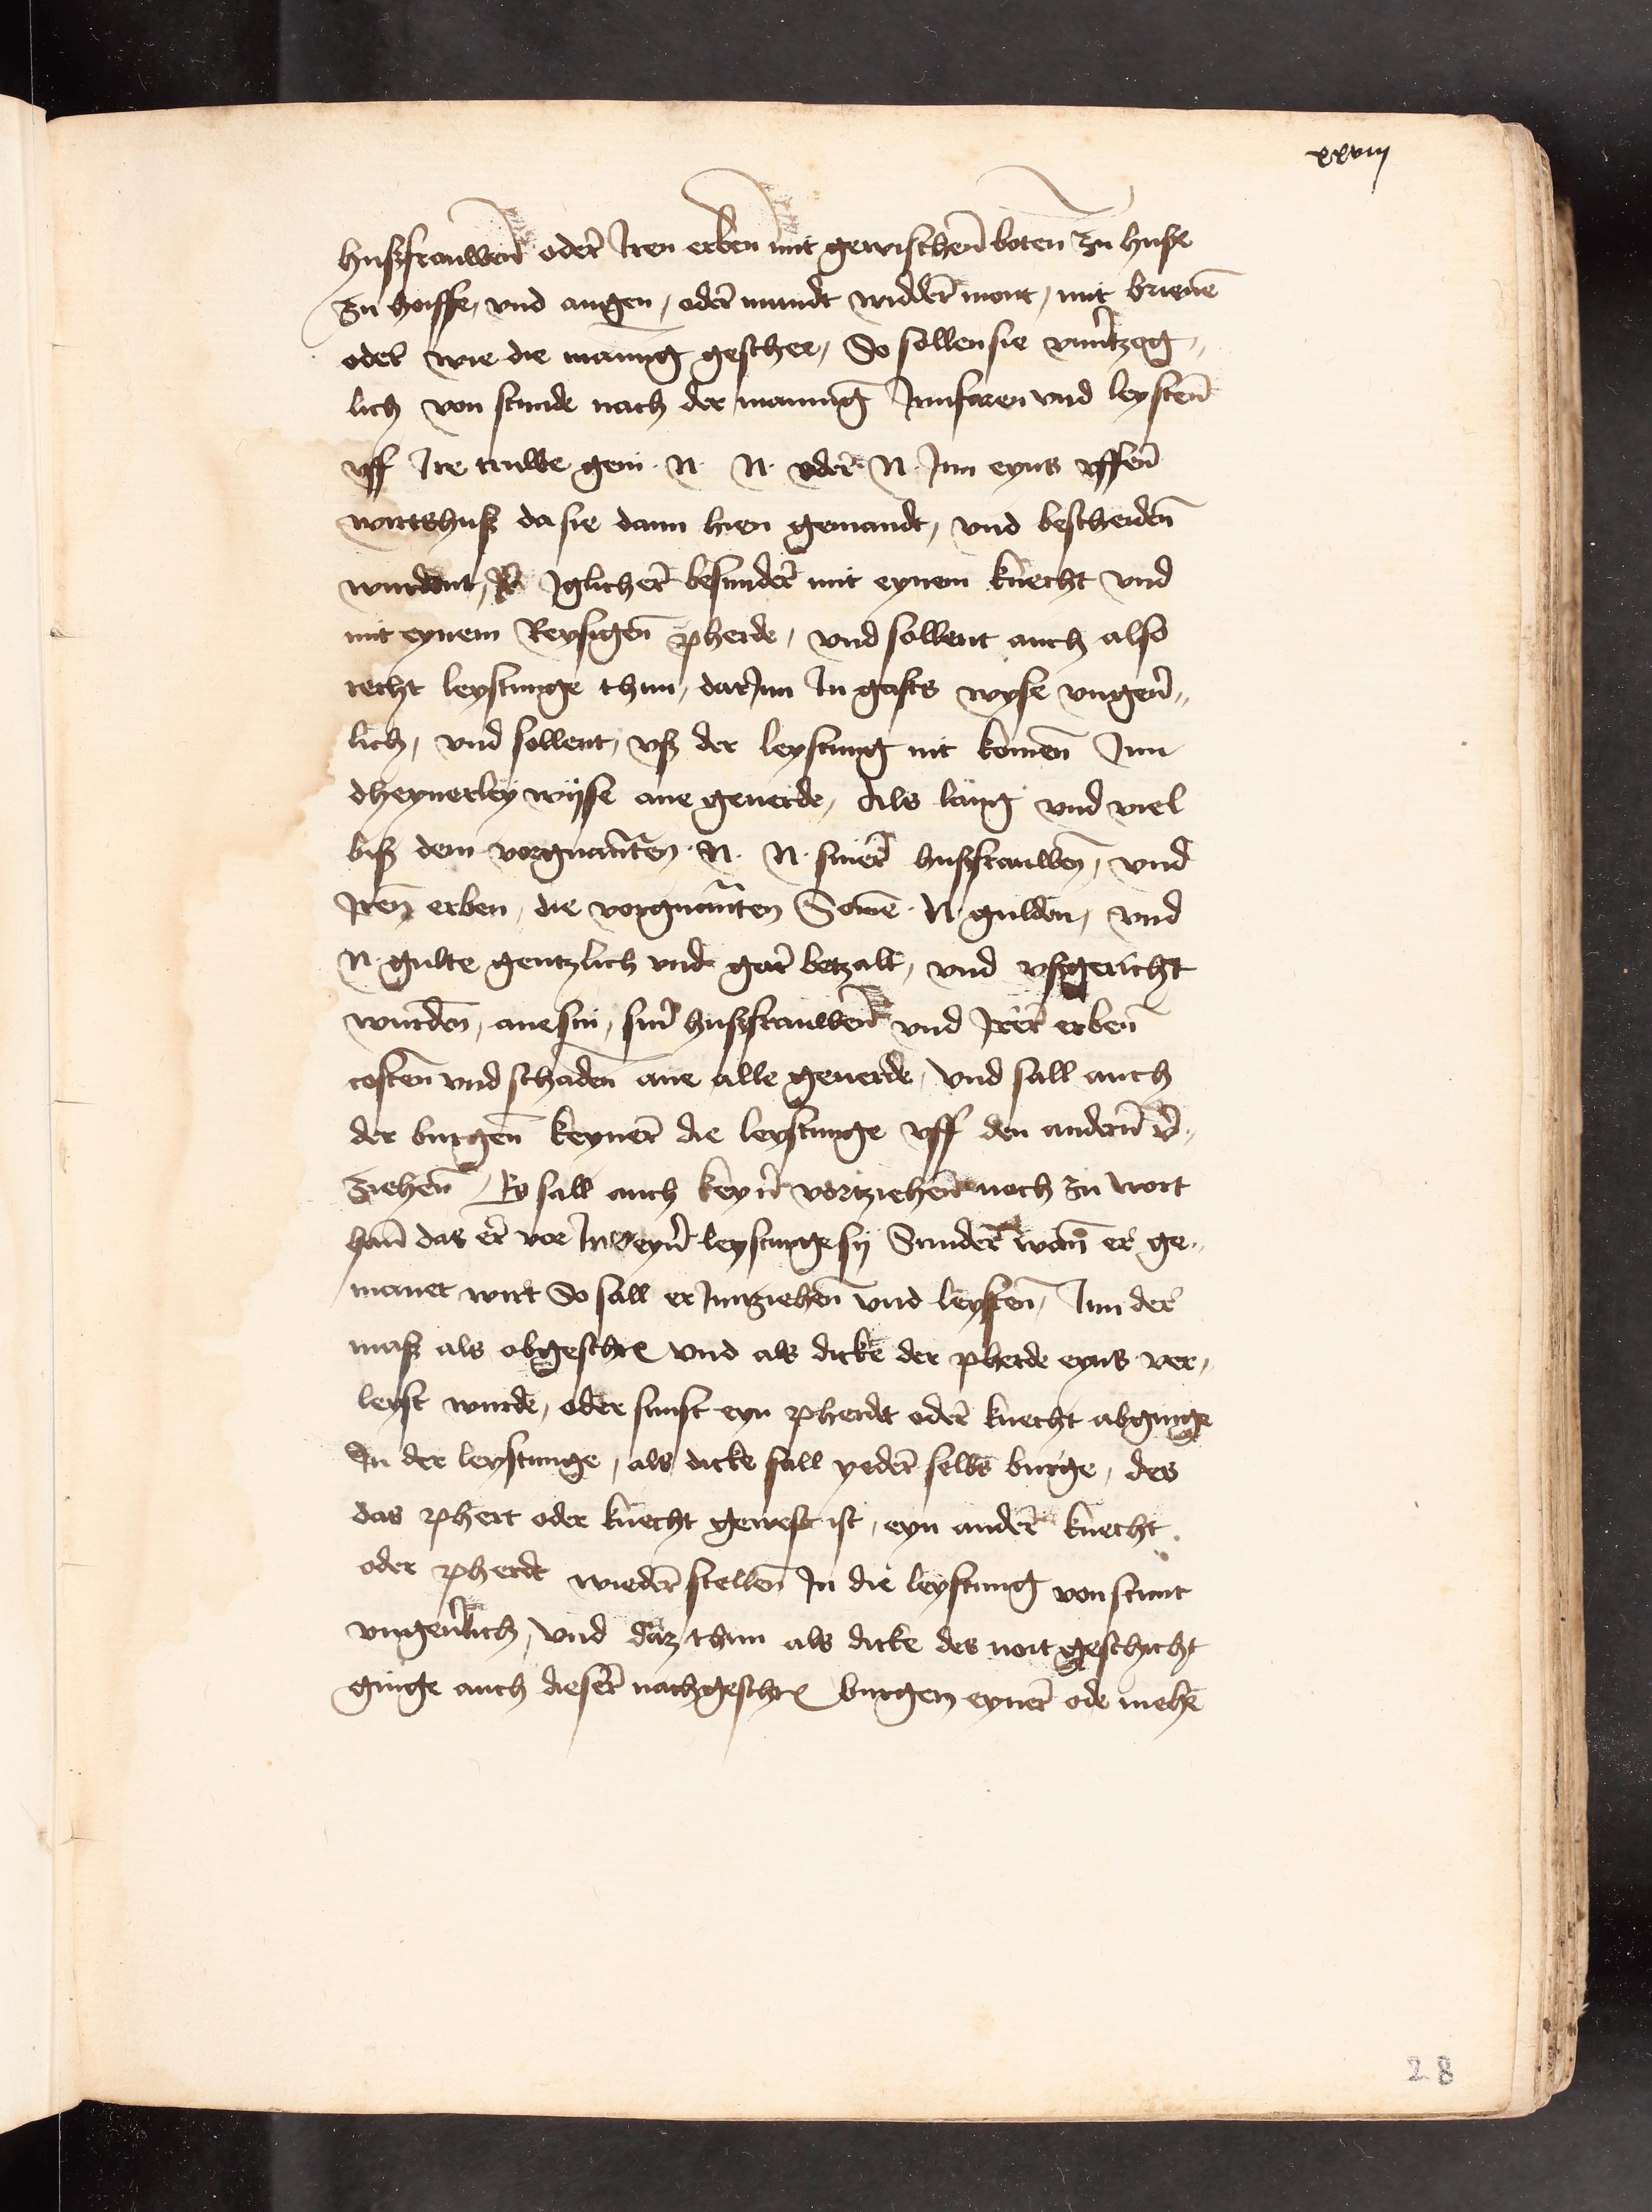 xxviij
hußfrauwen oder Iren erben mit gewischen boten zu huse
zu hoiffe, vnd augen, oder mundt widder mont, mit brieuen
oder wie die manung geschee, So sollen sie vnuertzog„
lich von stunde nach der manung Innfaren vnd leysten
vff Ire truwe gein · N · N · oder · N · Inn eyns uffen
wirtshuß da sie dann hien gemandt, vnd bescheiden
wurdent, Iglicher besunder mit eynem knecht vnd
mit eynem Reysigen pherde, vnd sollent auch also
recht leystunge thun, darInn In gasts wyse ungeu'„
lich, vnd sollent, vß der leystung nit komen Inn
dheynerley wyse ane geuerde, Als lang vnd viel
biß dem vorgnanten · N · N · siner hußfrauwen, vnd
Iren erben, die vorgnanten Some · N · gulden, vnd
N · gulte gentzlich vnd gar betzalt, vnd vßgericht
wurden, ane sin, sin' hußfrauwen vnd Irer erben
costen vnd schaden ane alle geuerde, vnd sall auch
der burgen keyner die leystunge vff den andern v'„
ziehen, Es sall auch keyn' vortziehen noch zu wort
han das er vor In eyn' leystunge sij Sunder wan er ge„
manet wirt So sall er Inntziehen vnd leysten, Inn der
maß als obgeschr' vnd als dicke der pherde eyns ver„
leyst wurde, oder sunst eyn pherdt oder knecht abginge
In der leystunge, als dicke sall yeder selbs burge, des
das phert oder knecht gewest ist, eyn ander knecht
oder pherdt wieder stellen In die leystung von stunt
vngeu'lich, vnd daz thun als dicke des noit geschicht
ginge auch dieser nachgeschr' burgen eyner ode mehe
28